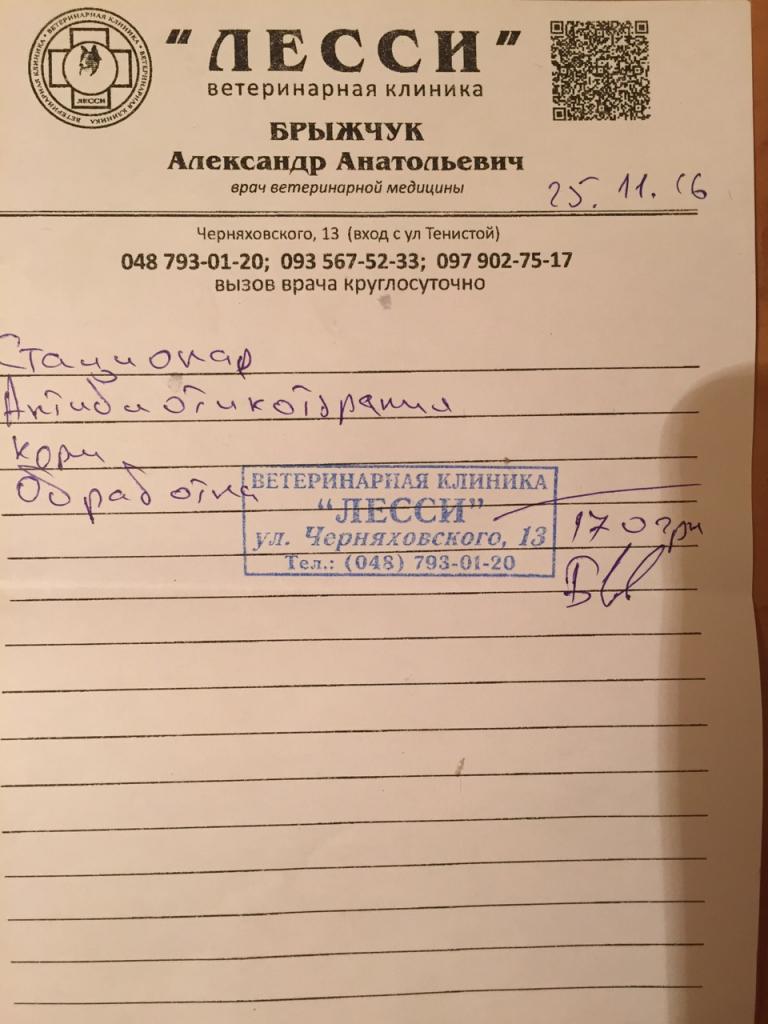 ВЕТЕРИНАРНАЯ КЛИНИКА • ВЕТЕРИНАРНАЯ КЛИНИКА
ЛЕССИ
"ЛЕССИ"
ветеринарная клиника
БРЫЖЧУК
Александр Анатольевич
врач ветеринарной медицины
25. 11. 16
Черняховского, 13 (вход с ул Тенистой)
048 793-01-20; 093 567-52-33; 097 902-75-17
вызов врача круглосуточно
Стационар
Антибиотикотерапия
корм
Обработка
ВЕТЕРИНАРНАЯ КЛИНИКА
"ЛЕССИ"
ул. Черняховского, 13
Тел.: (048) 793-01-20
170 грн